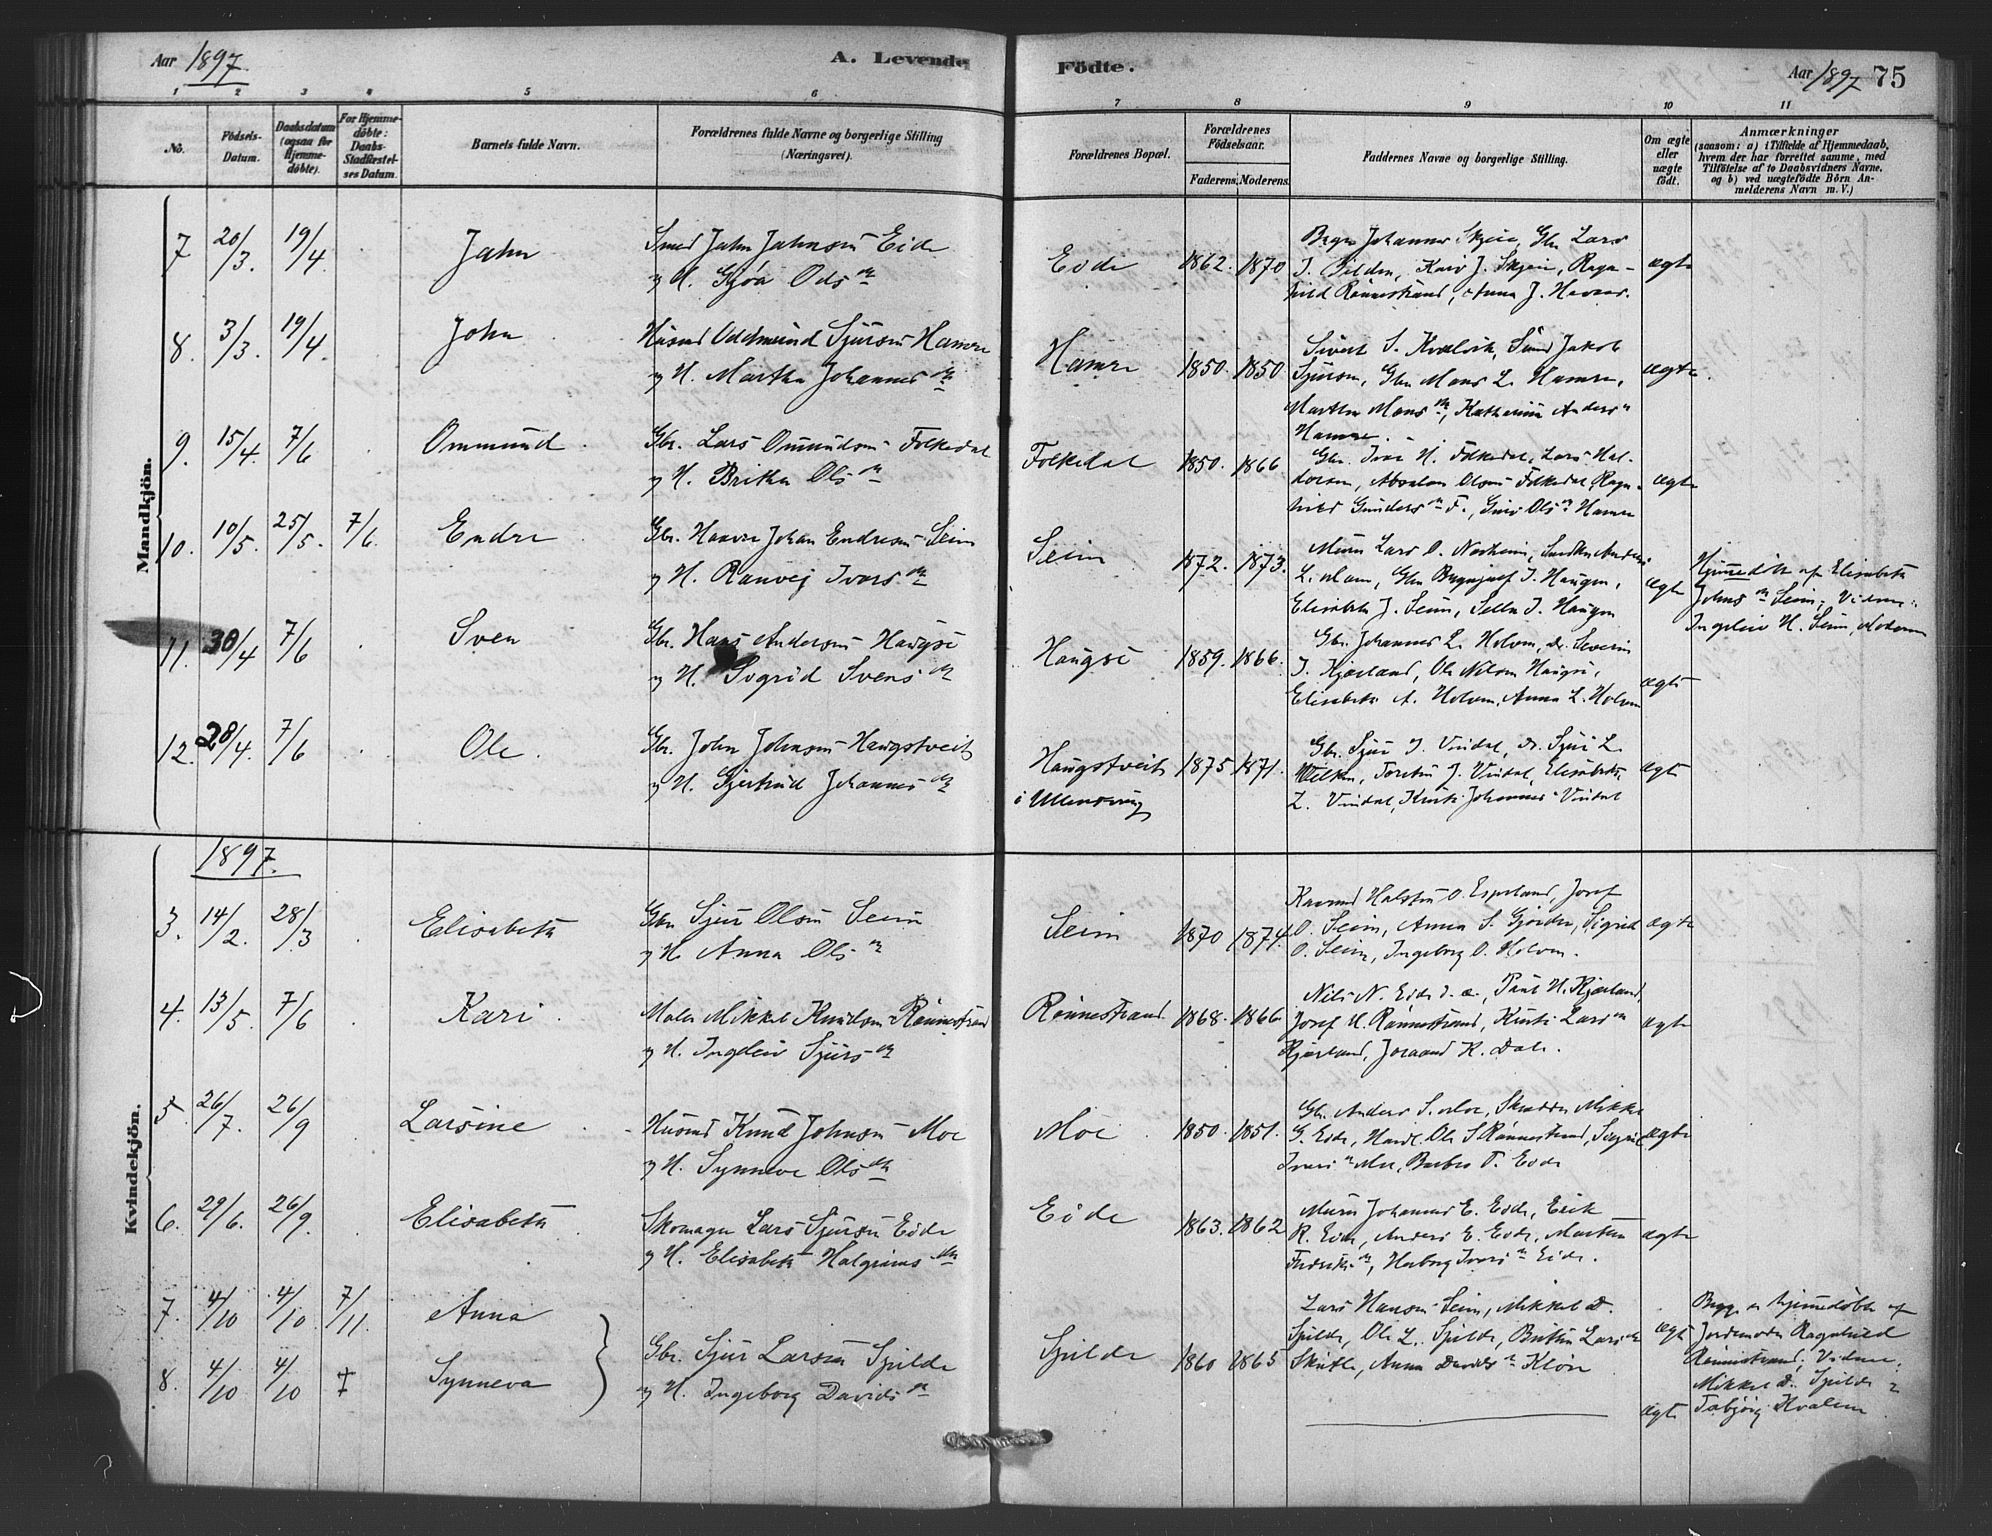 Aar 1897.
A. Levende Födte.
Aar 1897 75
1 2 3 4 5 6 7 8 9 10 11
No.
Födsels-Datum.
Daabsdatum (ogsaa for Hjemme-döbte).
For Hjemme-döbte: Daabs-Stadfæstel-ses Datum.
Barnets fulde Navn.
Forældrenes fulde Navne og borgerlige Stilling (Næringsvei).
Forældrenes Bopæl.
Forældrenes Födselsaar.
Faderens. Moderens.
Faddernes Navne og borgerlige Stilling.
Om ægte eller uægte födt.
Anmærkninger
(saasom: a) i Tilfælde af Hjemmedaab,
hvem der har forrettet samme, med
Tilföielse af to Daabsvidners Navne,
og b) ved uægtefödte Börn An-
melderens Navn m. V.)
Mandkjön.
7 20/3. 19/4. Jahn
Smed Jahn Jahnsen Eide
og H. Gjöa Ods dtr
Eide 1862. 1870
Johannes Skjeie, Gbr Lars
J. Kari J. Skjeie, Ragn-
hild Rönnestrand, Anna J. Havaas.
ægte
8. 3/3. 19/4. John
Husmd Oddmund Sjursen Hamre
og H. Martha Johannes dtr
Hamre 1850. 1850
Sivert S. Kvalvik, Smed Jakob
Sjursen, Gbr Mons L. Hamre,
Martha Mons dtr, Katharina Anders dtr
Hamre.
ægte
9. 15/4. 7/6 Ommund
Gbr. Lars Omundsen Folkedal
og H. Britha Ols dtr
Folkedal 1850. 1866.
Gbr. Ivar H. Folkedal, Lars Hal-
dorsen, Absalon Olsen Folkedal, Ragn-
hild Gunders dtr F., Guro Ols dtr Hamre
ægte
10. 10/5. 25/5. 7/6. Endre
Gbr. Haavre Johan Endresen Seim
og H. Ranveig Ivers dtr
Seim 1872. 1873.
Murer Lars O. Nesheim, Anders
L. Moe, Gbr Brynjulf I. Haugen,
Elisabeth J. Seim, Sella I. Haugen
ægte
Hjemmedöbt af Elisabeth
Johns dtr Seim, Vidner:
Ingeleiv H. Seim, Moderen
11. 30/4 7/6 Sven
Gbr. Hans Andersen Haugse
og H. Sygrid Svens dtr
Haugse 1859. 1866.
Gbr. Johannes L. Holven, do. Severin
I. Kjærland, Ole Nilsen Haugse,
Elisabeth A. Holven, Anna L. Holven
ægte
12. 28/4. 7/6 Ole.
Gbr. John Johnsen Haugstveit
og H. Gjertrud Johannes dtr
Haugstveit
i Ullensvang
1875 1871.
Gbr. Sjur J. Vindal, do. Sjur L.
Torstein J. Vindal, Elisabeth
L. Vindal, Kirsti Johannes Vindal
ægte
1897.
Kvindekjön.
3. 14/2. 28/3 Elisabeth
Gbr Sjur Olsen Seim
og H Anna Ols dtr
Seim 1870 1874.
Halstein O. Espeland, Josef
O. Seim, Anna S. Sigrid
O. Seim, Ingeborg O. Holven.
ægte
4. 13/5. 7/6 Kari
Maler Mikkel Knudsen Rönnestrand
og H. Ingeleiv Sjurs dtr
Rönnestrand 1868. 1866.
Nils N. Eide d. æ., Paul H. Kjærland,
Josef H. Rönnestrand, Kirsti Lars dtr
Kjærland, Joraand K. Dale.
ægte
5. 26/7. 26/9 Larsine
Husmd Knud Johnsen Moe
og H. Synneve Ols dtr
Moe 1850. 1851.
Gbr. Anders S. Moe, Skrædder Mikkel
G. Eide, Handl. Ole S Rönnestrand, Sigrid
Ivers dtr Moe, Barbro T. Eide
ægte
6. 29/6. 26/9. Elisabeth
Skomager Lars Sjursen Eide
og H. Elisabeth Halgrims dtr
Eide 1863. 1862
Murer Johannes E. Eide, Erik
R. Eide, Anders E. Eide, Martha
Fredriks dtr, Herborg Ivers dtr Eide.
ægte
7. 4/10 4/10. 7/11. Anna
8. 4/10 4/10 † Synneva
Gbr. Sjur Larsen Spilde
og H. Ingeborg Davids dtr
Spilde 1860 1865
Lars Hansen Seim, Mikkel D.
Spilde, Ole L. Spilde, Britha Lars dtr
Skutle, Anna Davids dtr Klöve
ægte
ægte
Begge er hjemmedöbte af
Jordemoder Ragnhild
Rönnestrand, Vidner:
Mikkel D. Spilde &
Torbjörg Kvalem